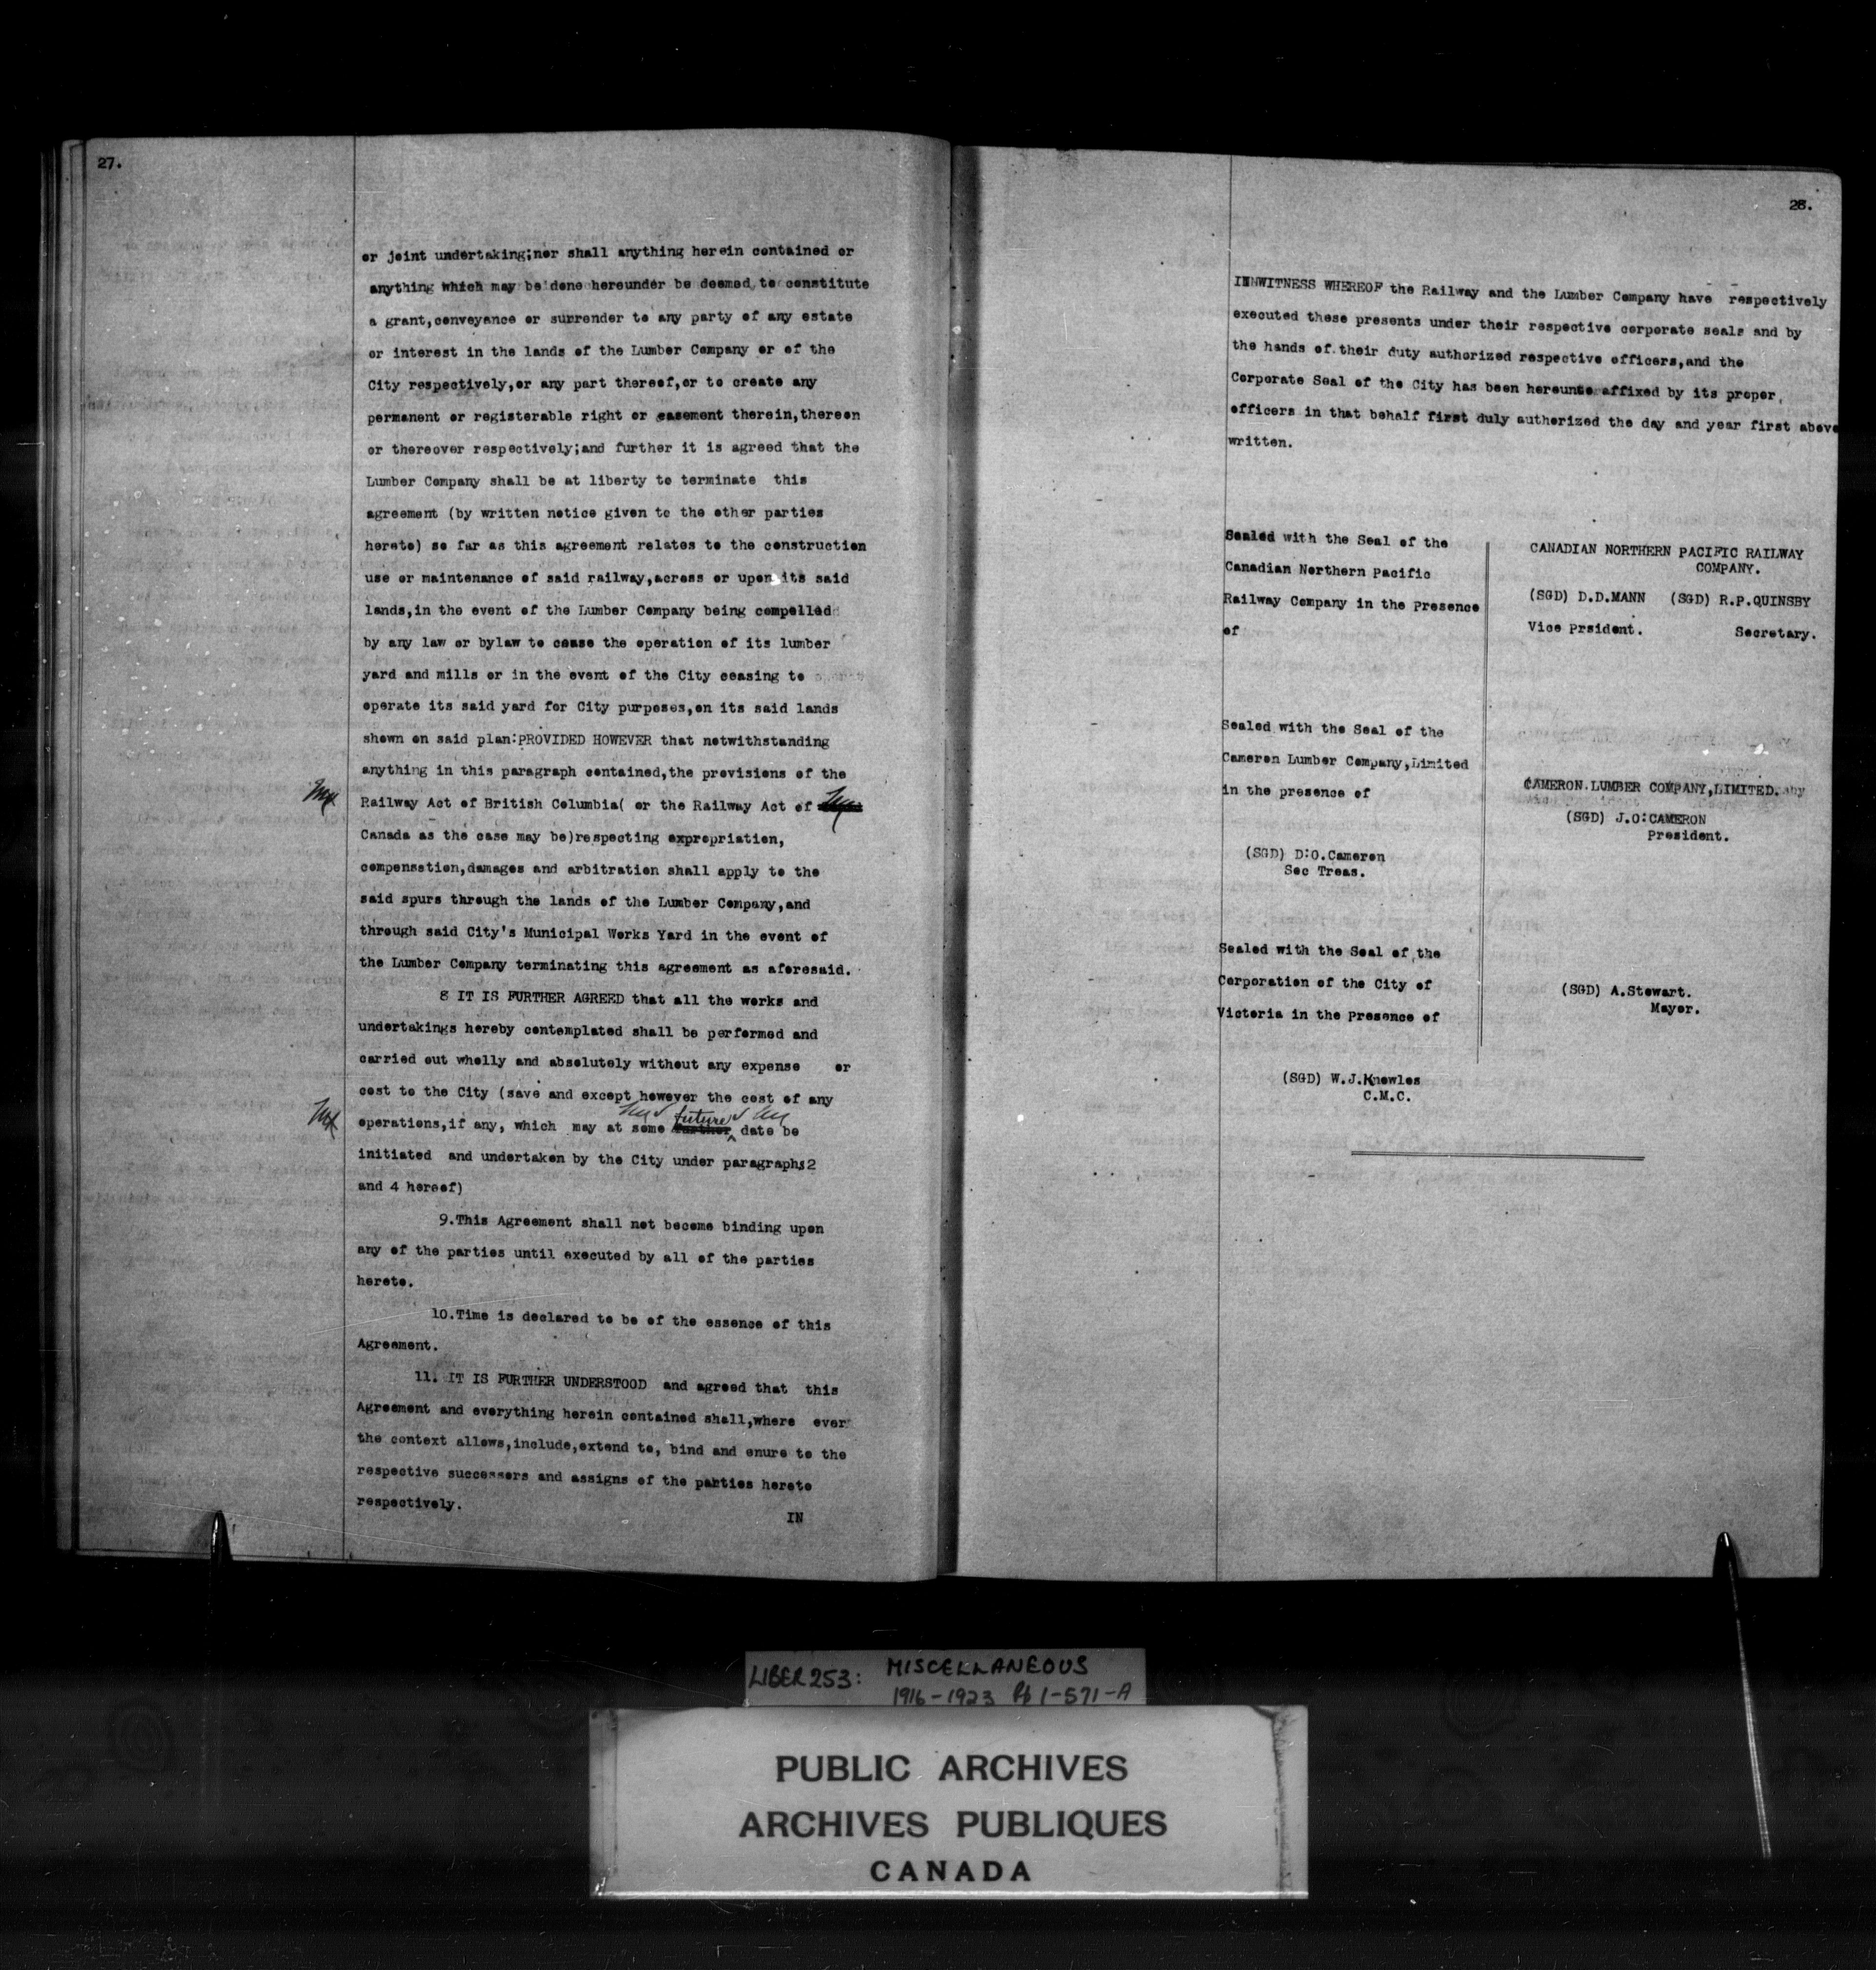 27.
or joint undertaking;nor shall anything herein contained or
anything which may be done hereunder be deemed to constitute
a grant,conveyance or surrender to any party of any estate
or interest in the lands of the Lumber Company or of the
City respectively,or any part thereof,or to create any
permanent or registerable right or easement therein,thereon
or thereover respectively;and further it is agreed that the
Lumber Company shall be at liberty to terminate this
agreement (by written notice given to the other parties
hereto) so far as this agreement relates to the construction
use or maintenance of said railway,across or upon its said
lands,in the event of the Lumber Company being compelled
by any law or bylaw to cease the operation of its lumber
yard and mills or in the event of the City ceasing to
operate its said yard for City purposes,on its said lands
shown on said plan:PROVIDED HOWEVER that notwithstanding
anything in this paragraph contained,the provisions of the
Railway Act of British Columbia( or the Railway Act of
Canada as the case may be)respecting expropriation,
compensation,damages and arbitration shall apply to the
said spurs through the lands of the Lumber Company,and
through said City's Municipal Works Yard in the event of
the Lumber Company terminating this agreement as aforesaid.
8 IT IS FURTHER AGREED that all the works and
undertakings hereby contemplated shall be performed and
carried out wholly and absolutely without any expense or
cost to the City (save and except however the cost of any
future
operations,if any, which may at some further date be
initiated and undertaken by the City under paragraphs2
and 4 hereof)
9.This Agreement shall not become binding upon
any of the parties until executed by all of the parties
hereto.
10.Time is declared to be of the essence of this
Agreement.
11. IT IS FURTHER UNDERSTOOD and agreed that this
Agreement and everything herein contained shall,where ever
the context allows,include,extend to, bind and enure to the
respective successors and assigns of the parties hereto
respectively.
IN
28.
INNWITNESS WHEREOF the Railway and the Lumber Company have respectively
executed these presents under their respective corporate seals and by
the hands of their duty authorized respective officers,and the
Corporate Seal of the City has been hereunto affixed by its proper
officers in that behalf first duly authorized the day and year first above
written.
Sealed with the Seal of the
Canadian Northern Pacific
Railway Company in the Presence
of
CANADIAN NORTHERN PACIFIC RAILWAY
COMPANY.
(SGD) D.D.MANN (SGD) R.P.QUINSBY
Vice Prsident. Secretary.
Sealed with the Seal of the
Cameron Lumber Company,Limited
in the presence of
(SGD) D:O.Cameron
Sec Treas.
CAMERON.LUMBER COMPANY,LIMITED.
(SGD) J.O:CAMERON
President.
Sealed with the Seal of the
Corporation of the City of
Victoria in the Presence of
(SGD) W.J.Knowles
C.M.C.
(SGD) A.Stewart.
Mayor.
LIBER 253: MISCELLANEOUS
1916-1923 Pp 1-571-A
PUBLIC ARCHIVES
ARCHIVES PUBLIQUES
CANADA